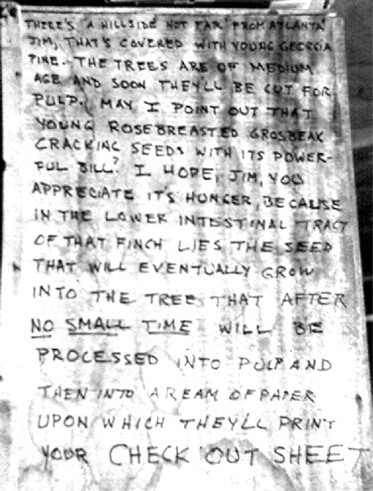 THERE'S A HILLSIDE NOT FAR FROM ATLANTA
JIM, THAT'S COVERED WITH YOUNG GEORGIA
PINE. THE TREES ARE OF MEDIUM
AGE AND SOON THEY'LL BE CUT FOR
PULP. MAY I POINT OUT THAT
YOUNG ROSEBREASTED GROSBEAK
CRACKING SEEDS WITH ITS POWER-
FUL BILL? I HOPE, JIM, YOU
APPRECIATE IT'S HUNGER, BECAUSE
IN THE LOWER INTESTINAL TRACT
OF THAT FINCH LIES THE SEED
THAT WILL EVENTUALLY GROW
INTO THE TREE THAT AFTER
NO SMALL TIME WILL BE
PROCESSED INTO PULP AND
THEN INTO A REAM OF PAPER
UPON WHICH THEY'LL PRINT
YOUR CHECK OUT SHEET